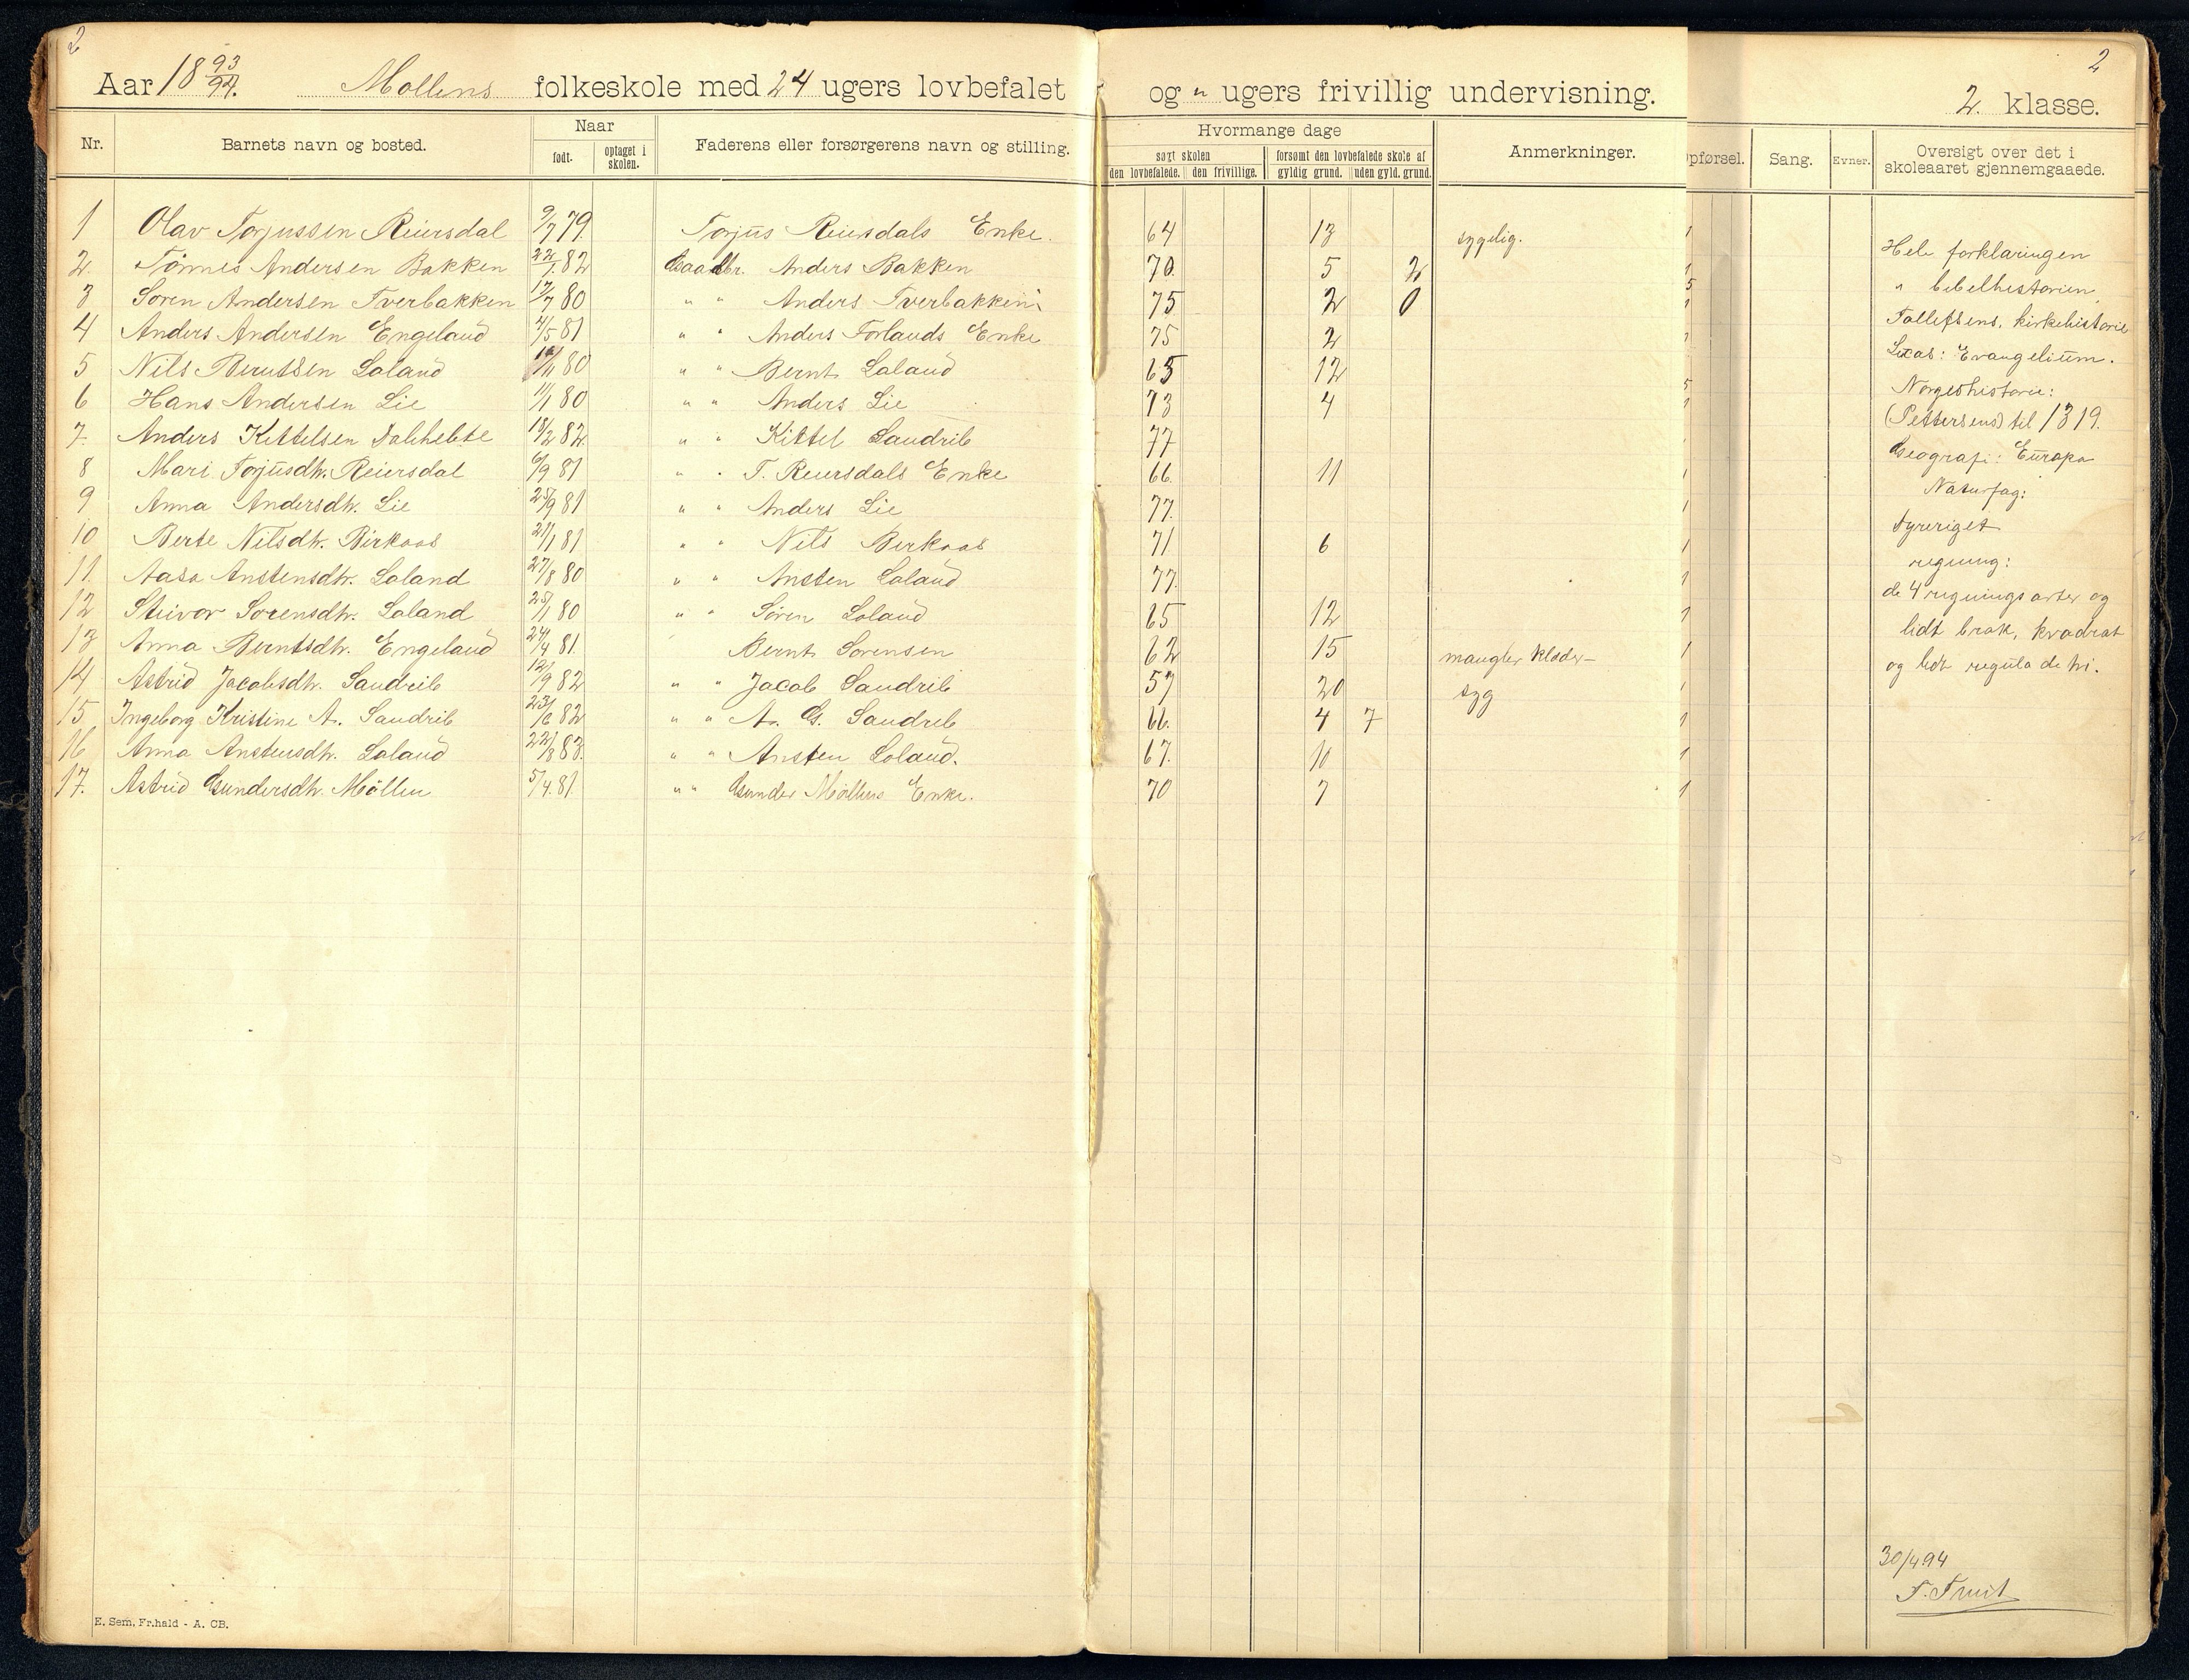 2
2
Aar 18 93/94. Mollens folkeskole med 24 ugers lovbefalet og " ugers frivillig undervisning. 2. klasse.
Nr. Barnets navn og bosted. Naar født. optaget i skolen. Faderens eller forsørgerens navn og stilling. Hvormange dage søgt skolen den lovbefalede. den frivillige. forsømt den lovbefalede skole af gyldig grund. uden gyld. grund. Anmerkninger. pførsel. Sang. Evner. Oversigt over det i skoleaaret gjennemgaaede.
1 Olav Torjussen Reiersdal 9/7 79. Torjus Reiersdals Enke. 64 13 sygelig. 1
2. Tönnes Andersen Bakken 22/1. 82 Gaardbr. Anders Bakken 70. 5 2 1
3 Soren Andersen Tverbakken 17/7 80 " " Anders Tverbakken 75 2 0
4 Anders Andersen Engeland 4/5 81 " Anders Forlands Enke 75 2
5 Nils Berntsen Loland 80 " " Bernt Loland 65 12
6 Hans Andersen Lie 11/1 80 " " Anders Lie 73 4
7. Anders Kittelsen 18/2 82. " " Kittel Landrib 77
8 Mari Torjusdtr. Reiersdal 6/9 81 " " T. Reiersdals Enke 66. 11
9 Anna Andersdtr. Lie 25/9 81 " " Anders Lie 77.
10 Berte Nilsdtr. Birkaas 21/1 81 " " Nils Berkaas 71 6
11. Aasa Anstensdtr. Loland 27/8 80 " " Ansten Loland 77.
12 Steivor Sorensdtr. Loland 25/1 80 " " Sören Loland 65 12
13 Anna Berntsdtr. Engeland 24/4 81. Bernt Sorensen 62 15 mangler klæder- 1
14 Astrid Jacobsdtr. Landrib 12/9 82 " " Jacob Landrib 57 20 syg
15 Ingeborg Kristine A. Landrib 23/6 82 " " A. G. Landrib 66. 4 7
16 Anna Anstensdtr. Loland 22/8 83. " " Ansten Loland. 67. 10
17. Astrid Gundersdtr. Möllen 5/4. 81. " " Gunder Möllens Enke. 70 7 1
Hele forklaringen
" bibelhistorien
Tallefsens, kirkehistorie
Lucas: Evangelium.
Norgeshistorie:
(Pettersens) til 1319.
Geografi: Europa
Naturfag:
dyreriget
regning:
de 4 regningsarter og
lidt brøk, kvadrat
og lidt regula de tri.
30/4 94
E. Sem. Fr.hald - A. CB.